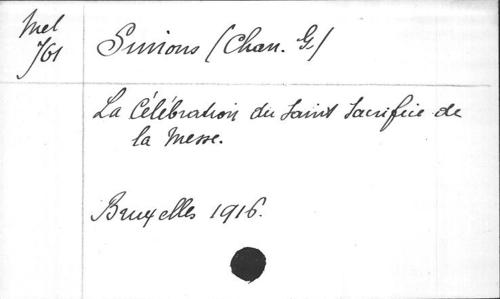 Mel
761
Simons (Chan. G.)
La Célébration du Saint Sacrifice de
la Messe.
Bruxelles 1916.